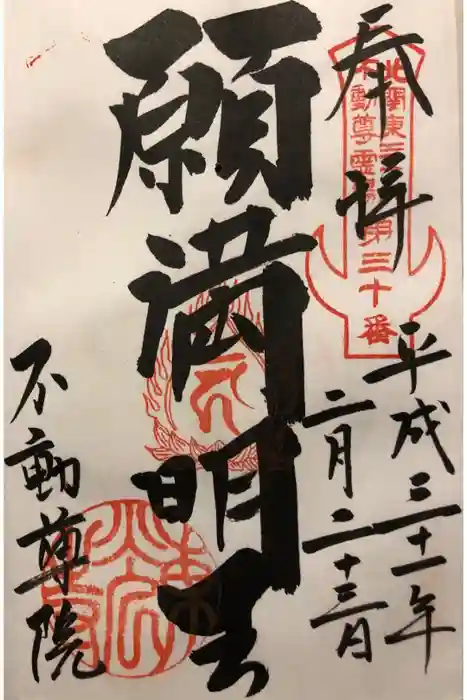 奉拝
北関東三十六不動尊霊場第三十番
平成三十一年
二月二十三日
願満明王
不動尊院